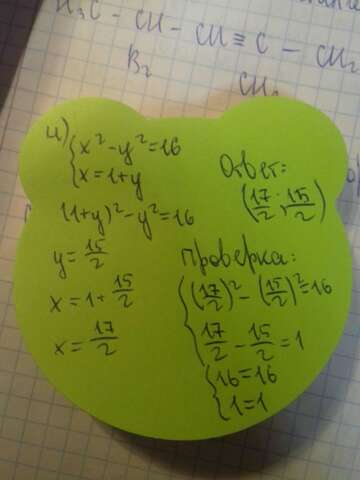 H₃C - CH - CH ≡ C - CH₂
B₂
CH₂
4)
{x² - y² = 16
{x = 1 + y
(1+y)² - y² = 16
y = 15/2
x = 1 + 15/2
x = 17/2
Ответ:
(17/2; 15/2)
Проверка:
{(17/2)² - (15/2)² = 16
{17/2 - 15/2 = 1
{16 = 16
{1 = 1